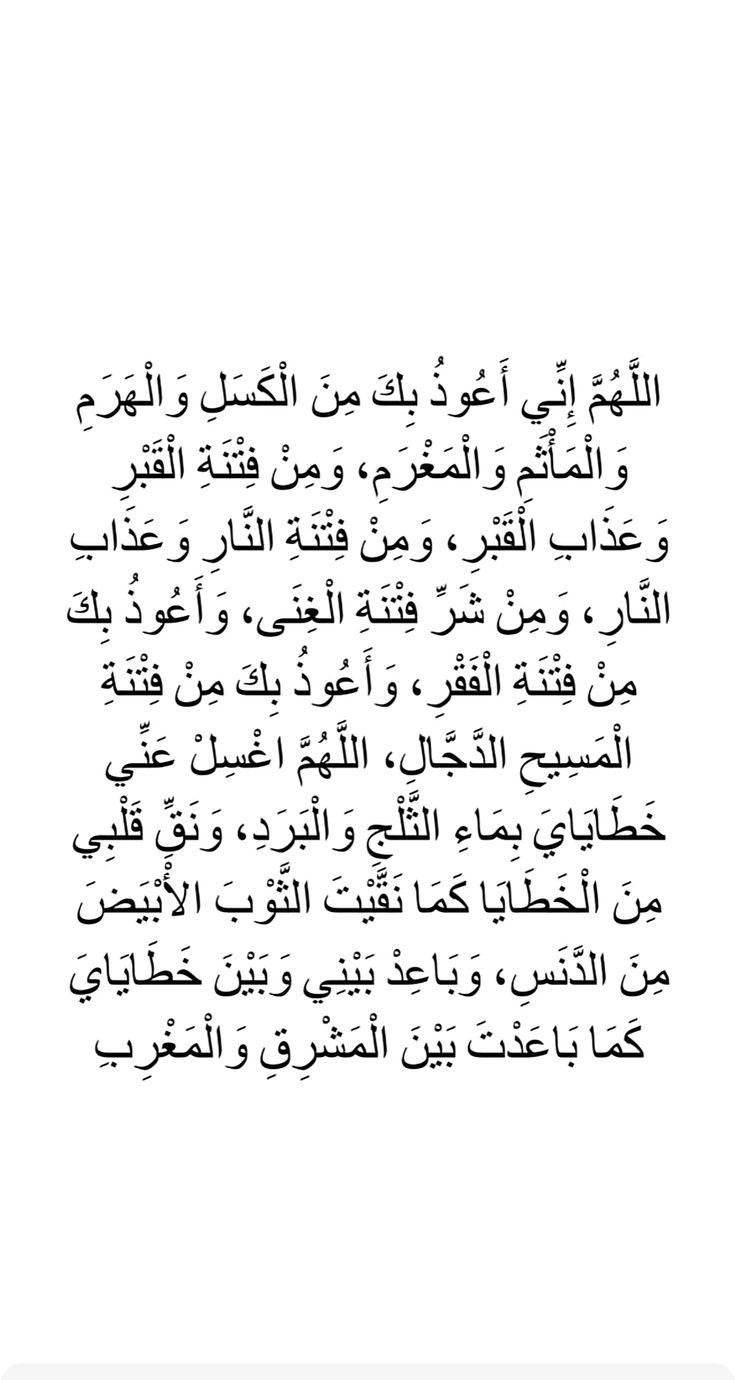 اللَّهُمَّ إِنِّي أَعُوذُ بِكَ مِنَ الْكَسَلِ وَالْهَرَمِ
وَالْمَأْثَمِ وَالْمَغْرَمِ، وَمِنْ فِتْنَةِ الْقَبْرِ
وَعَذَابِ الْقَبْرِ، وَمِنْ فِتْنَةِ النَّارِ وَعَذَابِ
النَّارِ، وَمِنْ شَرِّ فِتْنَةِ الْغِنَى، وَأَعُوذُ بِكَ
مِنْ فِتْنَةِ الْفَقْرِ، وَأَعُوذُ بِكَ مِنْ فِتْنَةِ
الْمَسِيحِ الدَّجَّالِ، اللَّهُمَّ اغْسِلْ عَنِّي
خَطَايَايَ بِمَاءِ الثَّلْجِ وَالْبَرَدِ، وَنَقِّ قَلْبِي
مِنَ الْخَطَايَا كَمَا نَقَّيْتَ الثَّوْبَ الأَبْيَضَ
مِنَ الدَّنَسِ، وَبَاعِدْ بَيْنِي وَبَيْنَ خَطَايَايَ
كَمَا بَاعَدْتَ بَيْنَ الْمَشْرِقِ وَالْمَغْرِبِ